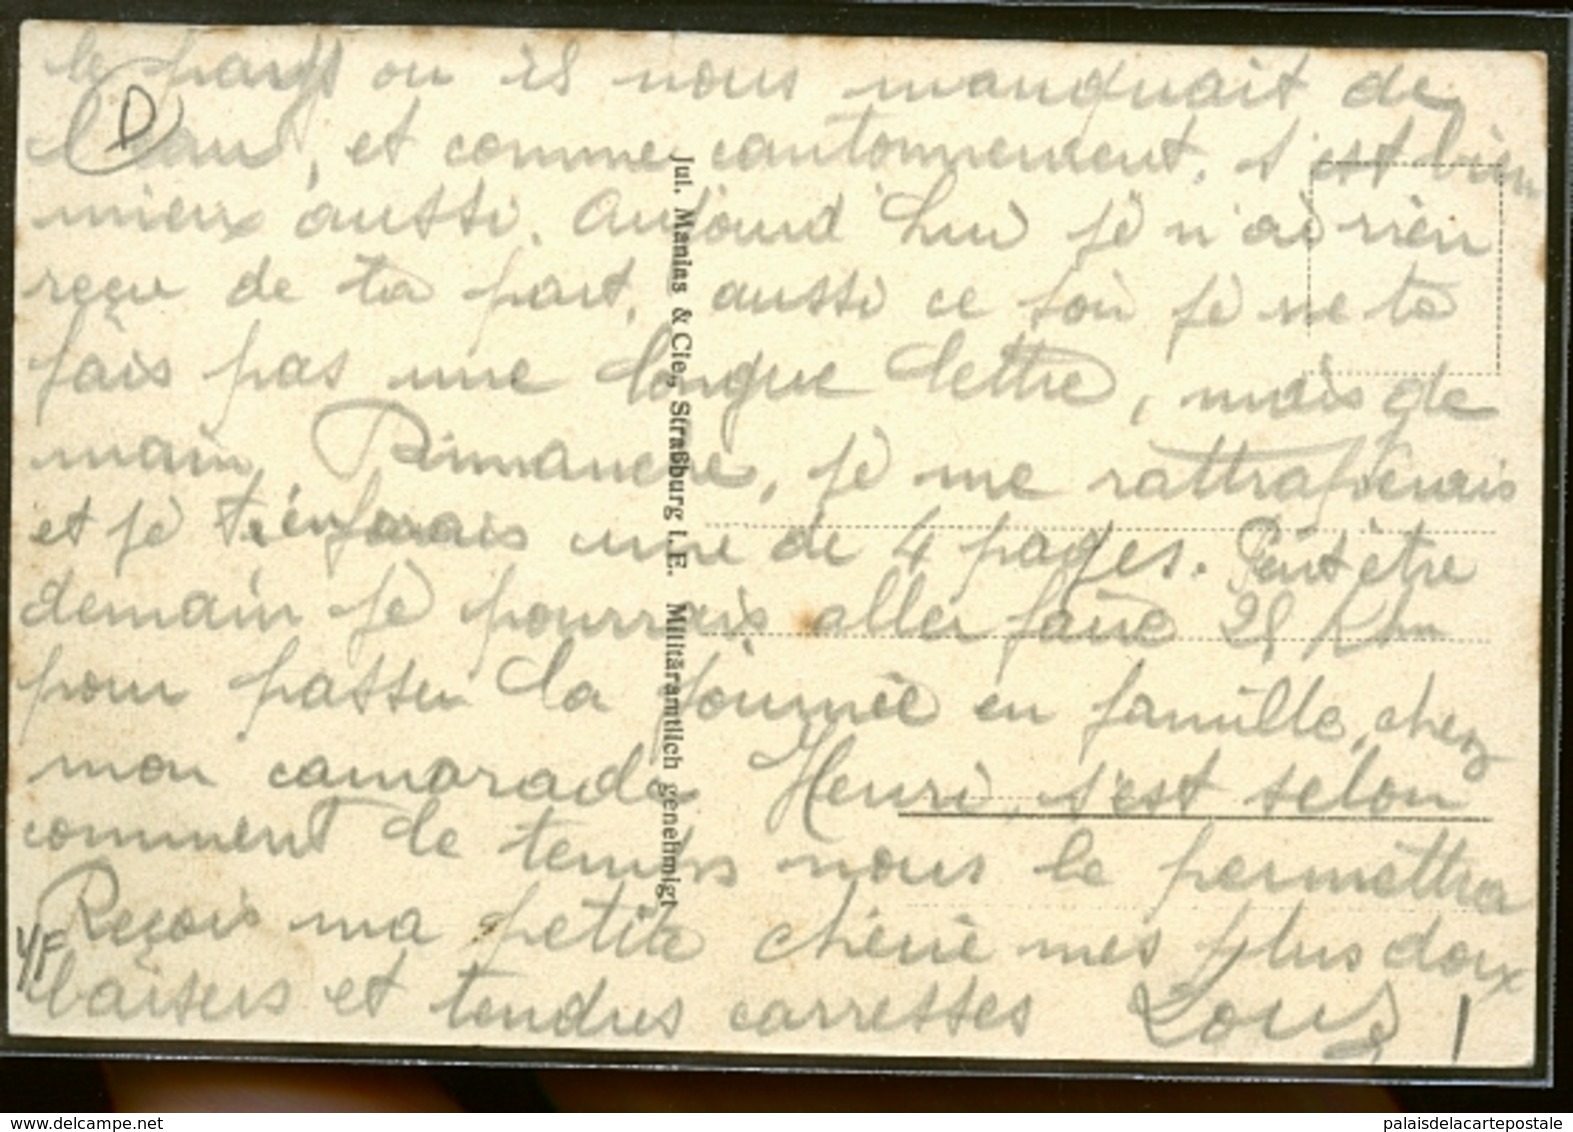 le pays ou il nous manquait de
l'eau, et comme cantonnement, s'est bien
mieux aussi. Aujourd'hui je n'ai rien
reçu de ta part, aussi ce soir je ne te
fais pas une longue lettre, mais de
main Dimanche, je me rattraperais
et je t'enferais une de 4 pages. Peut être
demain je pourrais aller faire 28 Klm
pour passer la journée en famille, chez
mon camarade Henri, s'est selon
comment le temps nous le permettra
Reçois ma petite chérie mes plus doux
baisers et tendres carresses Louis
D
Jul. Manias & Cie., Straßburg i. E. Militäramtlich genehmigt
delcampe.net
palaisdelacartepostale